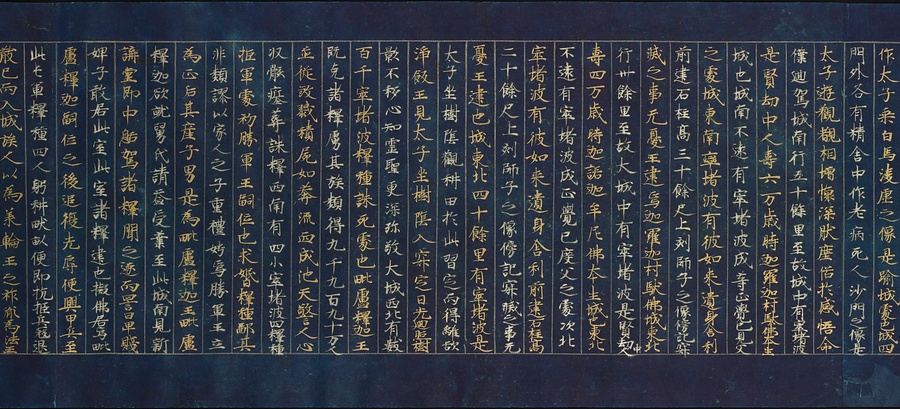 作太子乘白馬淩虛之像是踰城處也城四
門外各有精舍中作老病死人沙門之像是
太子遊觀覩相增懷深猒塵俗於此感悟命
僕迴駕城南行五十餘里至故城中有窣堵波
是賢劫中人壽六万歲時迦羅迦村馱佛本生
城也城南不遠有窣堵波成等正覺已見父
之處城東南窣堵波有彼如來遺身舍利
前建石柱高三十餘尺上刻師子之像傍記寂
滅之事无憂王建焉迦羅迦村馱佛城東北
行卅餘里至故大城中有窣堵波是賢劫人
壽四万歲時迦諾迦牟尼佛本生城也東北
不遠有窣堵波成正覺已度父之處次北
窣堵波有彼如來遺身舍利前建石柱高
二十餘尺上刻師子之像傍記寂滅之事无
憂王建也城東北四十餘里有窣堵波是
太子坐樹陰觀耕田於此習定而得離欲
淨飯王見太子坐樹陰入寂定日光迴照樹
影不移心知靈聖更深珍敬大城西北有數
百千窣堵波釋種誅死處也毗盧釋迦王
既克諸釋虜其族類得九千九百九十万人
並從殺戮積尸如莽流血成池天警人心
收骸瘞葬誅釋西南有四小窣堵波四釋種
拒軍處初勝軍王嗣位也求婚釋種鄙其
非類謬以家人之子重禮娉焉勝軍王立
為正后其產子男是為毗盧釋迦王毗盧
釋迦欲就舅氏請益受業至此城南見新
講堂即中憩駕諸釋聞之逐而罵曰卑賤
婢子敢居此室此室諸釋建也擬佛居焉毗
盧釋迦嗣位之後追復先辱便興甲兵至
此屯軍釋種四人躬耕畎畝便即抗拒兵寇退
散已而入城族人以為承輪王之祚胤為法王